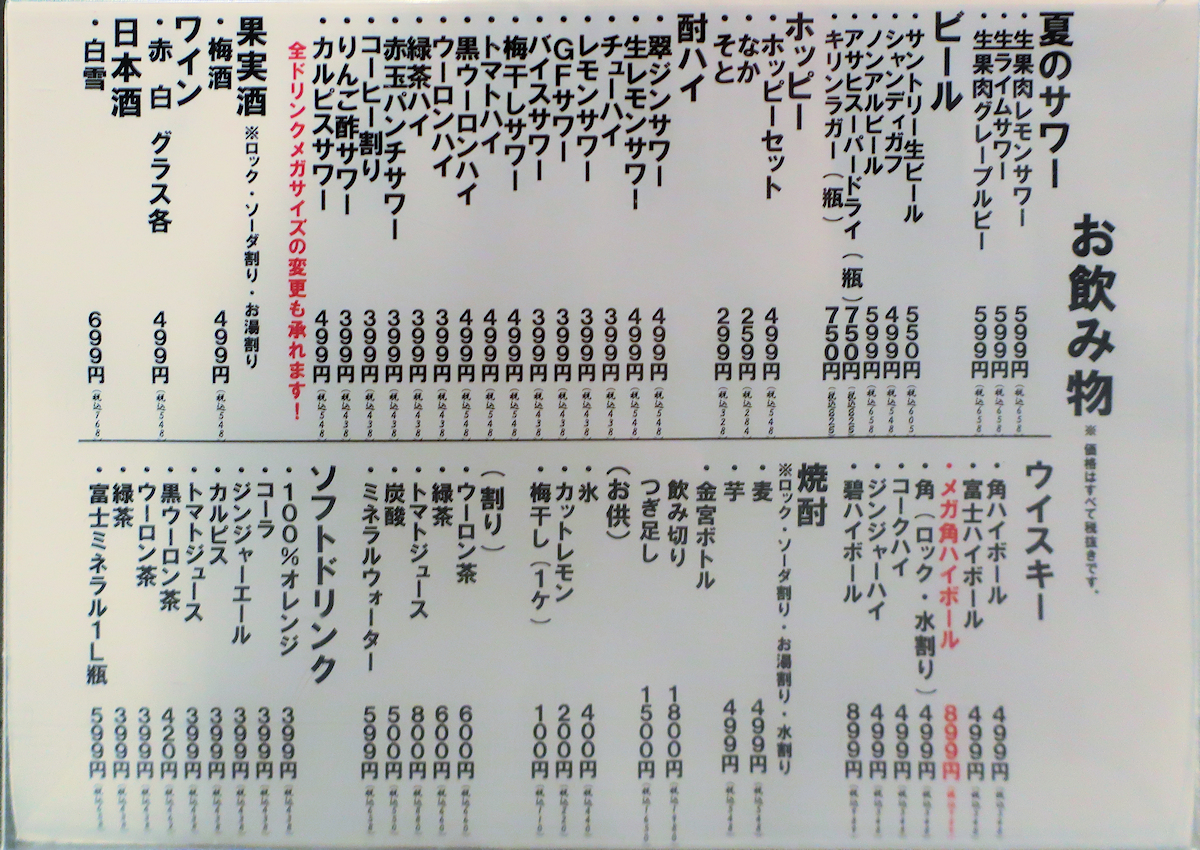 お飲み物 ※価格はすべて税抜きです。
夏のサワー
・生果肉レモンサワー 599円(税込658)
・生ライムサワー 599円(税込658)
・生果肉グレープルビー 599円(税込658)
ビール
・サントリー生ビール 550円(税込605)
・シャンディガフ 499円(税込548)
・ノンアルビール 599円(税込658)
・アサヒスーパードライ(瓶) 750円(税込825)
・キリンラガー(瓶) 750円(税込825)
ホッピー
・ホッピーセット 499円(税込548)
・なか 259円(税込284)
・そと 299円(税込328)
酎ハイ
・翠ジンサワー 499円(税込548)
・生レモンサワー 499円(税込548)
・チューハイ 399円(税込438)
・レモンサワー 399円(税込438)
・GFサワー 399円(税込438)
・バイスサワー 399円(税込438)
・梅干しサワー 499円(税込548)
・トマトハイ 499円(税込548)
・黒ウーロンハイ 499円(税込548)
・ウーロンハイ 399円(税込438)
・緑茶ハイ 399円(税込438)
・赤玉パンチサワー 399円(税込438)
・コーヒー割り 399円(税込438)
・りんご酢サワー 399円(税込438)
・カルピスサワー 499円(税込548)
全ドリンクメガサイズの変更も承れます!
果実酒 ※ロック・ソーダ割り・お湯割り
・梅酒 499円(税込548)
ワイン
・赤 白 グラス各 499円(税込548)
日本酒
・白雪 699円(税込768)
ウイスキー
・角ハイボール 499円
・富士ハイボール 499円
・メガ角ハイボール 899円
・角(ロック・水割り) 499円
・コークハイ 499円
・ジンジャーハイ 499円
・碧ハイボール 899円
焼酎
※ロック・ソーダ割り・お湯割り・水割り
・麦 499円
・芋 499円
・金宮ボトル
飲み切り 1800円
つぎ足し 1500円
(お供)
・氷 400円
・カットレモン 200円
・梅干し(1ケ) 100円
(割り)
・ウーロン茶 600円
・緑茶 600円
・トマトジュース 800円
・炭酸 500円
・ミネラルウォーター 599円
ソフトドリンク
・100%オレンジ 399円
・コーラ 399円
・ジンジャーエール 399円
・カルピス 399円
・トマトジュース 399円
・黒ウーロン茶 420円
・ウーロン茶 399円
・緑茶 399円
・富士ミネラル1L瓶 599円